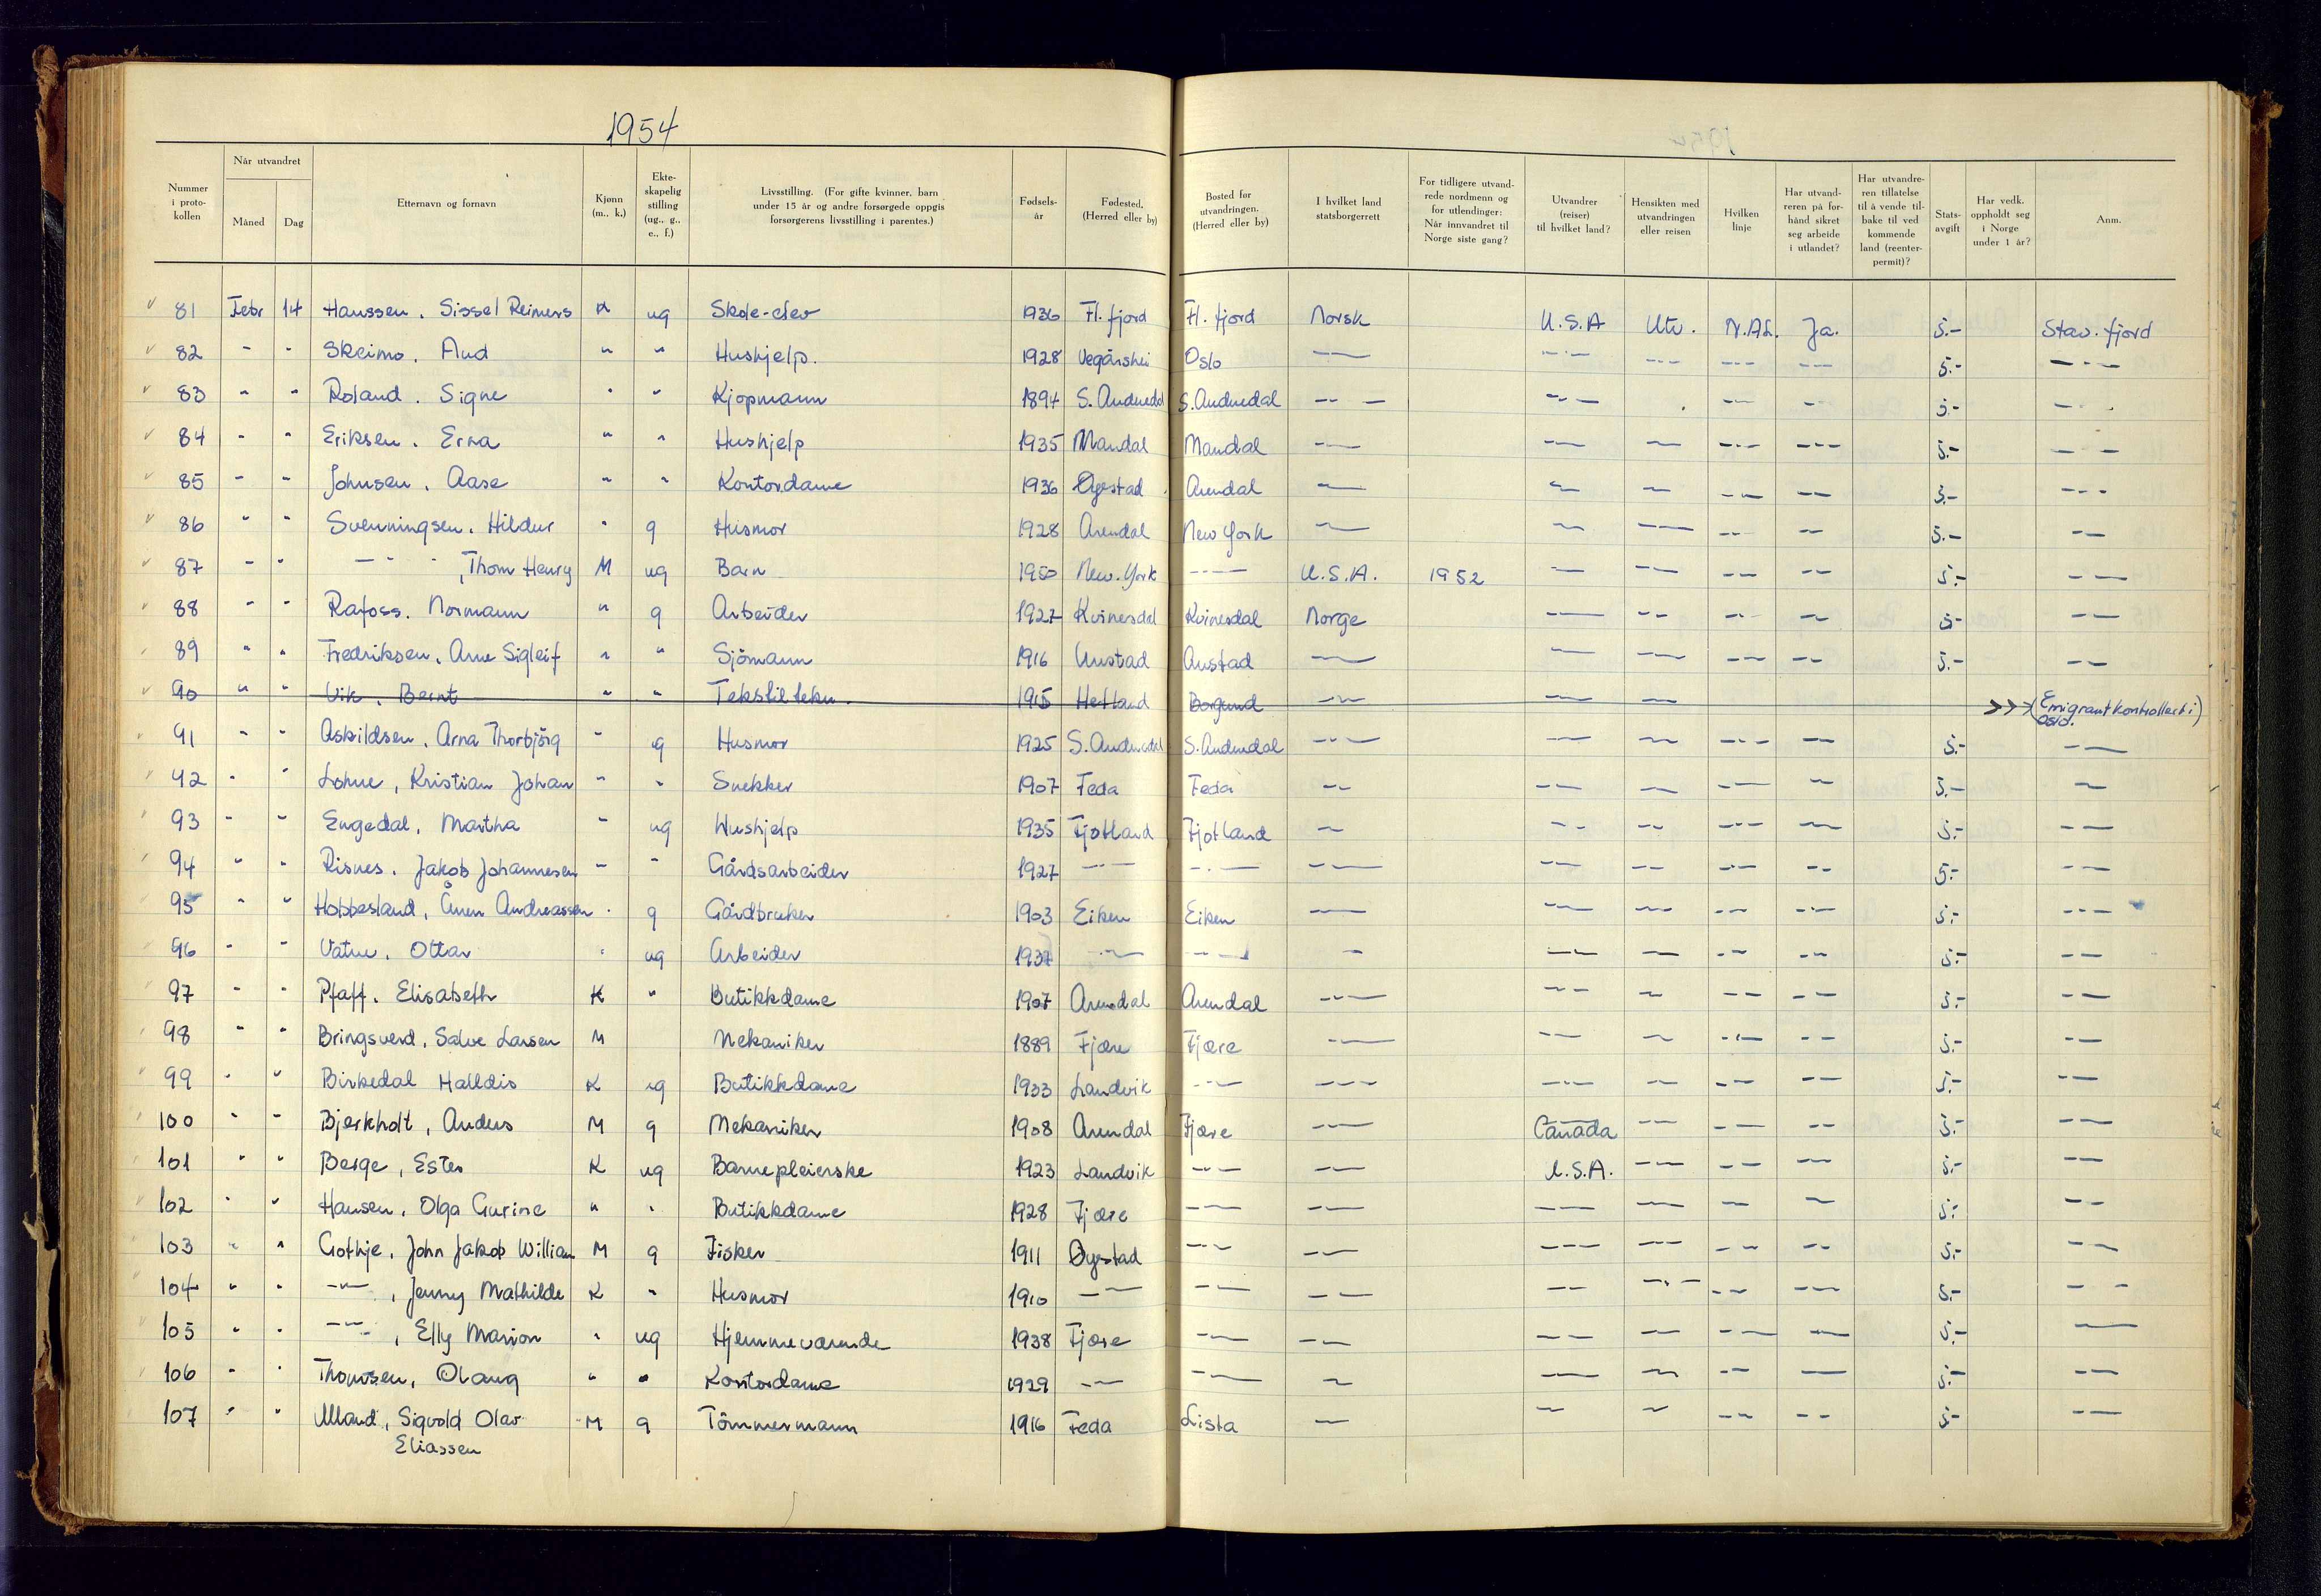 1954
Nummer i proto-kollen | Når utvandret Måned Dag | Etternavn og fornavn | Kjønn (m., k.) | Ekte-skapelig stilling (ug., g., e., f.) | Livsstilling. (For gifte kvinner, barn under 15 år og andre forsørgede oppgis forsørgerens livsstilling i parentes.) | Fødsels-år | Fødested. (Herred eller by) | Bosted før utvandringen. (Herred eller by) | I hvilket land statsborgerrett | For tidligere utvand-rede nordmenn og for utlendinger: Når innvandret til Norge siste gang? | Utvandrer (reiser) til hvilket land? | Hensikten med utvandringen eller reisen | Hvilken linje | Har utvand-reren på for-hånd sikret seg arbeide i utlandet? | Har utvandre-ren tillatelse til å vende til-bake til ved kommende land (reenter-permit)? | Stats-avgift | Har vedk. oppholdt seg i Norge under 1 år? | Anm.
81 Febr 14 Hanssen. Sissel Reimers K ug Skole-elev 1936 Fl. fjord Fl. fjord Norsk U.S.A Utv. N.A.L. Ja. 5.- Stav. fjord
82 " " Skeimo. Aud " " Hushjelp. 1928 Vegårshei Oslo — — — — — 5.- —
83 " " Roland. Signe " " Kjøpmann 1894 S. Audnedal S. Audnedal — — — — 5.- —
84 " " Eriksen. Erna " " Hushjelp 1935 Mandal Mandal — — — — — 5.- —
85 " " Johnsen. Aase " " Kontordame 1936 Øyestad Arendal — — — — — 5.- —
86 " " Svenningsen. Hildur " g Husmor 1928 Arendal New York — — — — — 5.- —
87 " " — " — , Thom Henry M ug Barn 1950 New. York — U.S.A. 1952 — — — — 5.- —
88 " " Rafoss. Normann " g Arbeider 1927 Kvinesdal Kvinesdal Norge — — — — 5- —
89 " " Fredriksen. Arne Sigleif " " Sjömann 1916 Austad Austad — — — — — 5.- —
90 " " Vik. Bernt " " Tekstiltekn. 1915 Hetland Borgund — — — >>> (Emigrantkontrollert i Oslo.)
91 " " Askildsen. Arna Thorbjörg " g Husmor 1925 S. Audnedal S. Audnedal — — — — — 5.- —
92 " " Lohne, Kristian Johan " " Snekker 1907 Feda Feda — — — — — 5.- —
93 " " Engedal, Martha " ug Hushjelp 1935 Fjotland Fjotland — — — — — 5.- —
94 " " Risnes. Jakob Johannesen " " Gårdsarbeider 1927 — — — — — — — 5.- —
95 " " Hobbesland, Ånen Andreassen " g Gårdbruker 1903 Eiken Eiken — — — — — 5.- —
96 " " Vatne. Ottar " ug Arbeider 1937 — — — — — — — 5.- —
97 " " Pfaff. Elisabeth K " Butikkdame 1907 Arendal Arendal — — — — — 5.- —
98 " " Bringsverd, Salve Larsen M Mekaniker 1889 Fjære Fjære — — — — — 5.- —
99 " " Birkedal Halldis K ug Butikkdame 1933 Landvik — — — — — — 5.- —
100 " " Bjerkholt, Anders M g Mekaniker 1908 Arendal Fjære — Canada — — — 5.- —
101 " " Berge, Ester K ug Barnepleierske 1923 Landvik — — U.S.A. — — — 5.- —
102 " " Hansen. Olga Gurine " " Butikkdame 1928 Fjære — — — — — — 5.- —
103 " " Gothje, John Jakob William M g Fisker 1911 Øyestad — — — — — — 5.- —
104 " " — " — , Jenny Mathilde K " Husmor 1910 — — — — — — — 5.- —
105 " " — " — , Elly Marion " ug Hjemmeværende 1938 Fjære — — — — — — 5.- —
106 " " Thomsen, Olaug " " Kontordame 1929 — — — — — — — 5.- —
107 " " Ulland, Sigvald Olav M g Tömmermann 1916 Feda Lista — — — — — 5- —
Eliassen